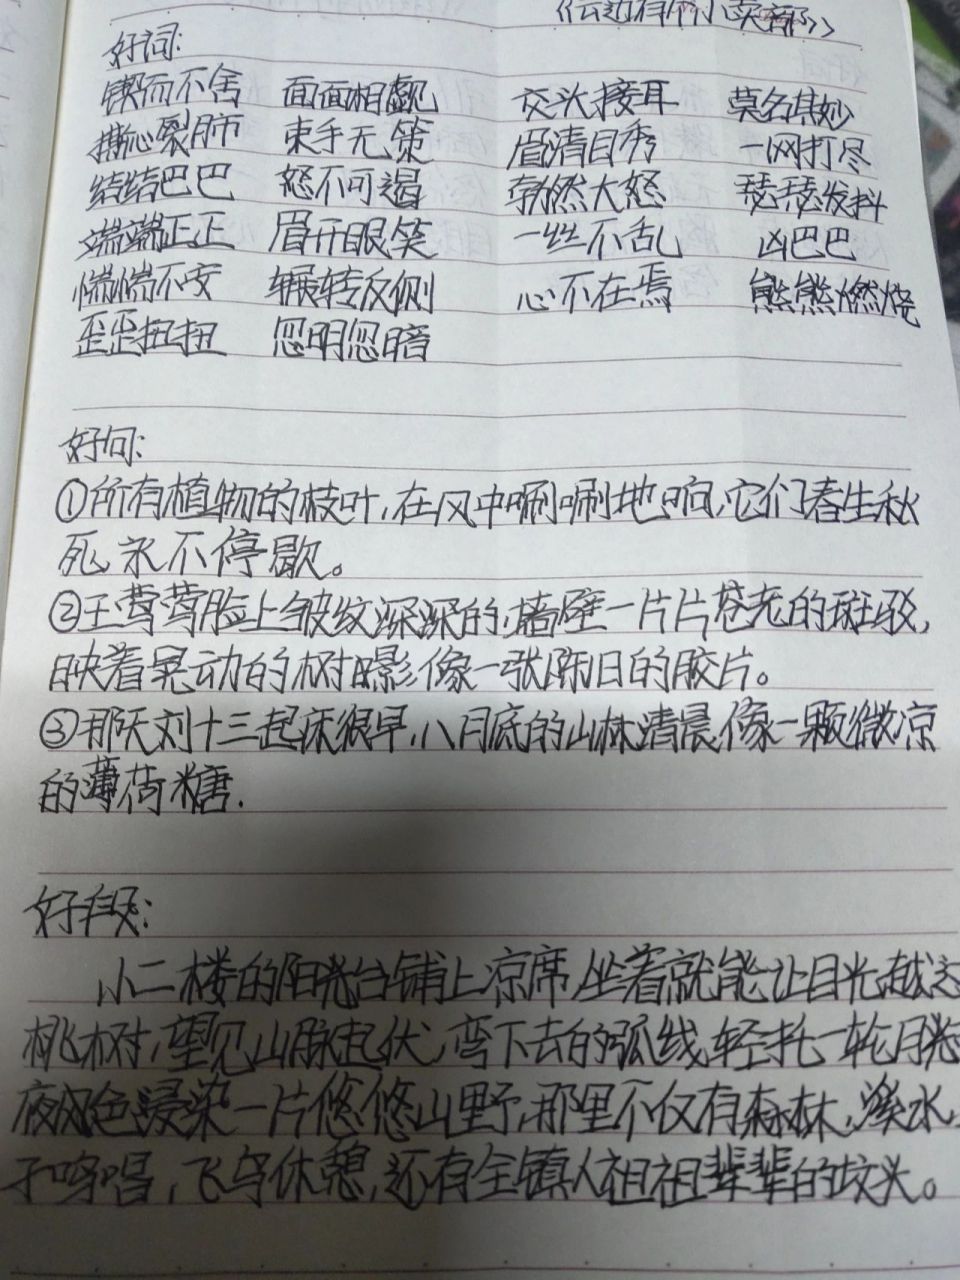 《云边有个小卖部》
好词:
锲而不舍 面面相觑 交头接耳 莫名其妙
撕心裂肺 束手无策 眉清目秀 一网打尽
结结巴巴 怒不可遏 勃然大怒 瑟瑟发抖
端端正正 眉开眼笑 一丝不乱 凶巴巴
惴惴不安 辗转反侧 心不在焉 熊熊燃烧
歪歪扭扭 忽明忽暗
好句:
①所有植物的枝叶,在风中唰唰地响,它们春生秋
死,永不停歇。
②王莺莺脸上皱纹深深的,墙壁一片片苍老的斑驳,
映着晃动的树影,像一张陈旧的胶片。
③那天刘十三起床很早,八月底的山林清晨,像一颗微凉
的薄荷糖.
好段:
小二楼的阳光台铺上凉席,坐着就能让目光越过
桃树,望见山脉起伏,弯下去的弧线,轻托一轮月亮
夜色浸染一片悠悠山野,那里不仅有森林,溪水,
子啼唱,飞鸟休憩,还有全镇人祖祖辈辈的坟头。